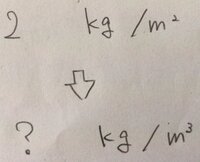 2 kg/m²
⇩
? kg/m³